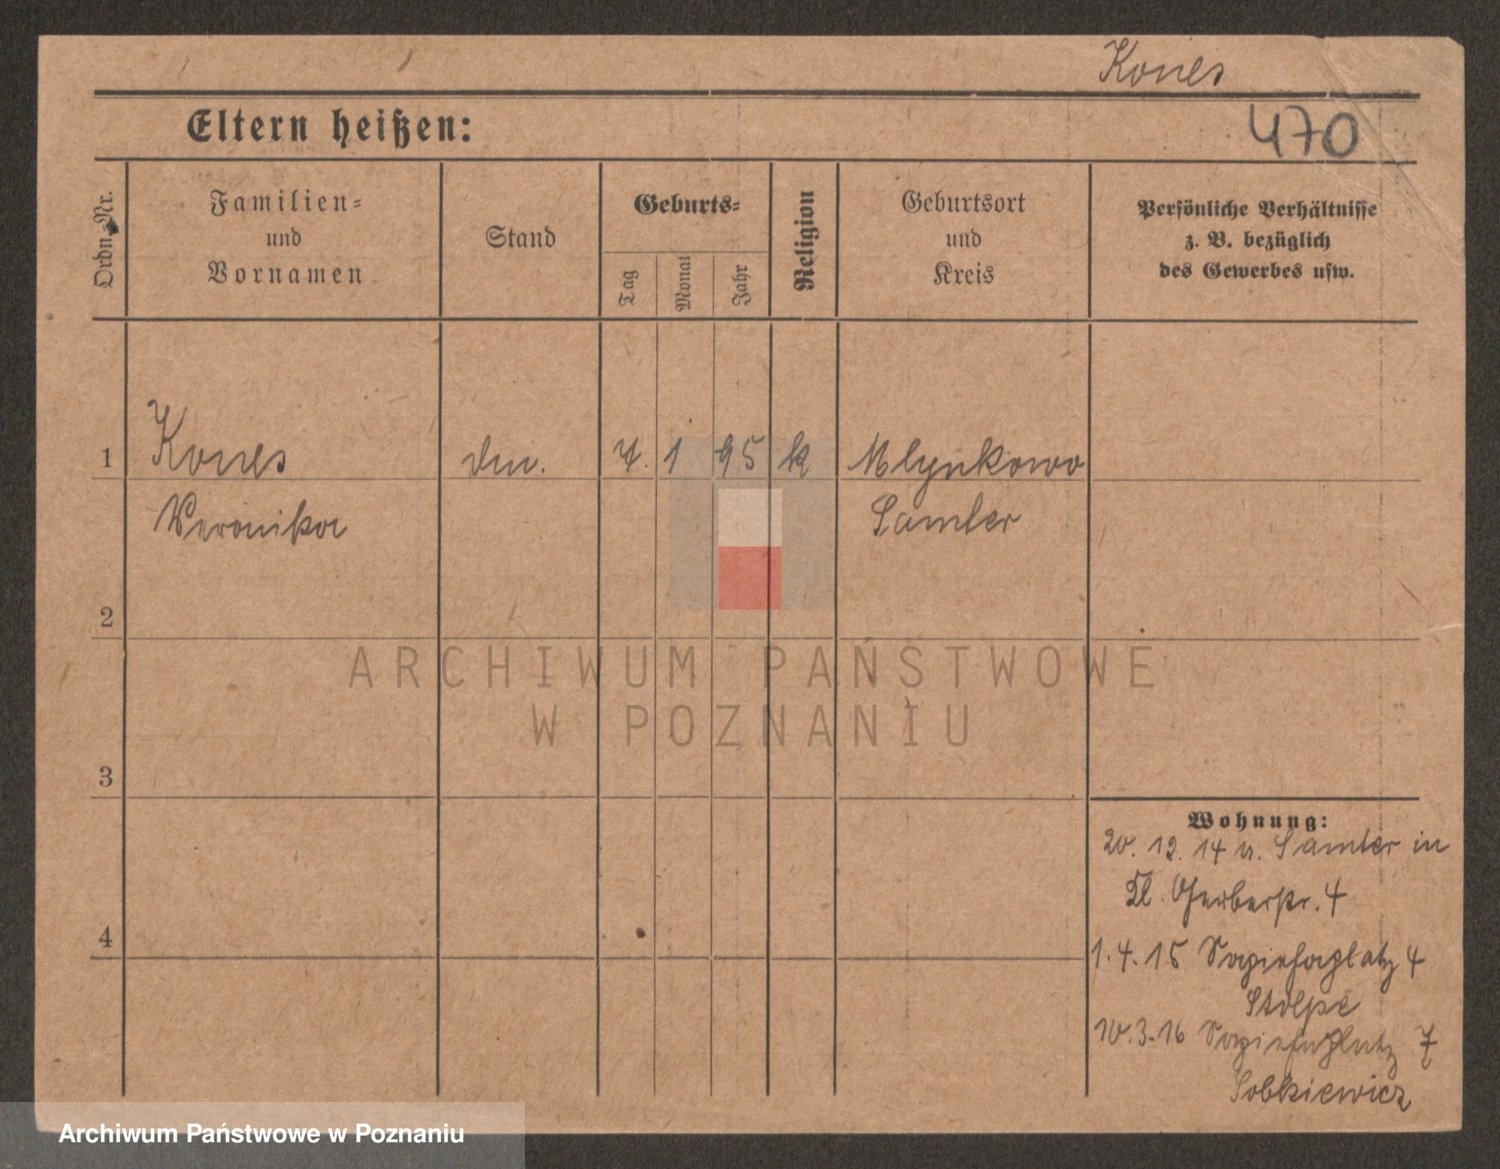 Kones
Eltern heißen:
470
Ordn.-Nr.
Familien-
und
Vornamen
Stand
Geburts-
Tag
Monat
Jahr
Religion
Geburtsort
und
Kreis
Persönliche Verhältnisse
z. B. bezüglich
des Gewerbes usw.
1 Kones 7. 1 95 k Mlynkowo
Veronika Samter
2
ARCHIWUM PAŃSTWOWE
W POZNANIU
3
Wohnung:
20. 12. 14 v. Samter in
Kl. Gerberstr. 4
4
1. 4. 15 Sapiehaplatz 4
Stolpe
10. 3. 16 Sapiehaplatz 7
Sobkiewicz
Archiwum Państwowe w Poznaniu